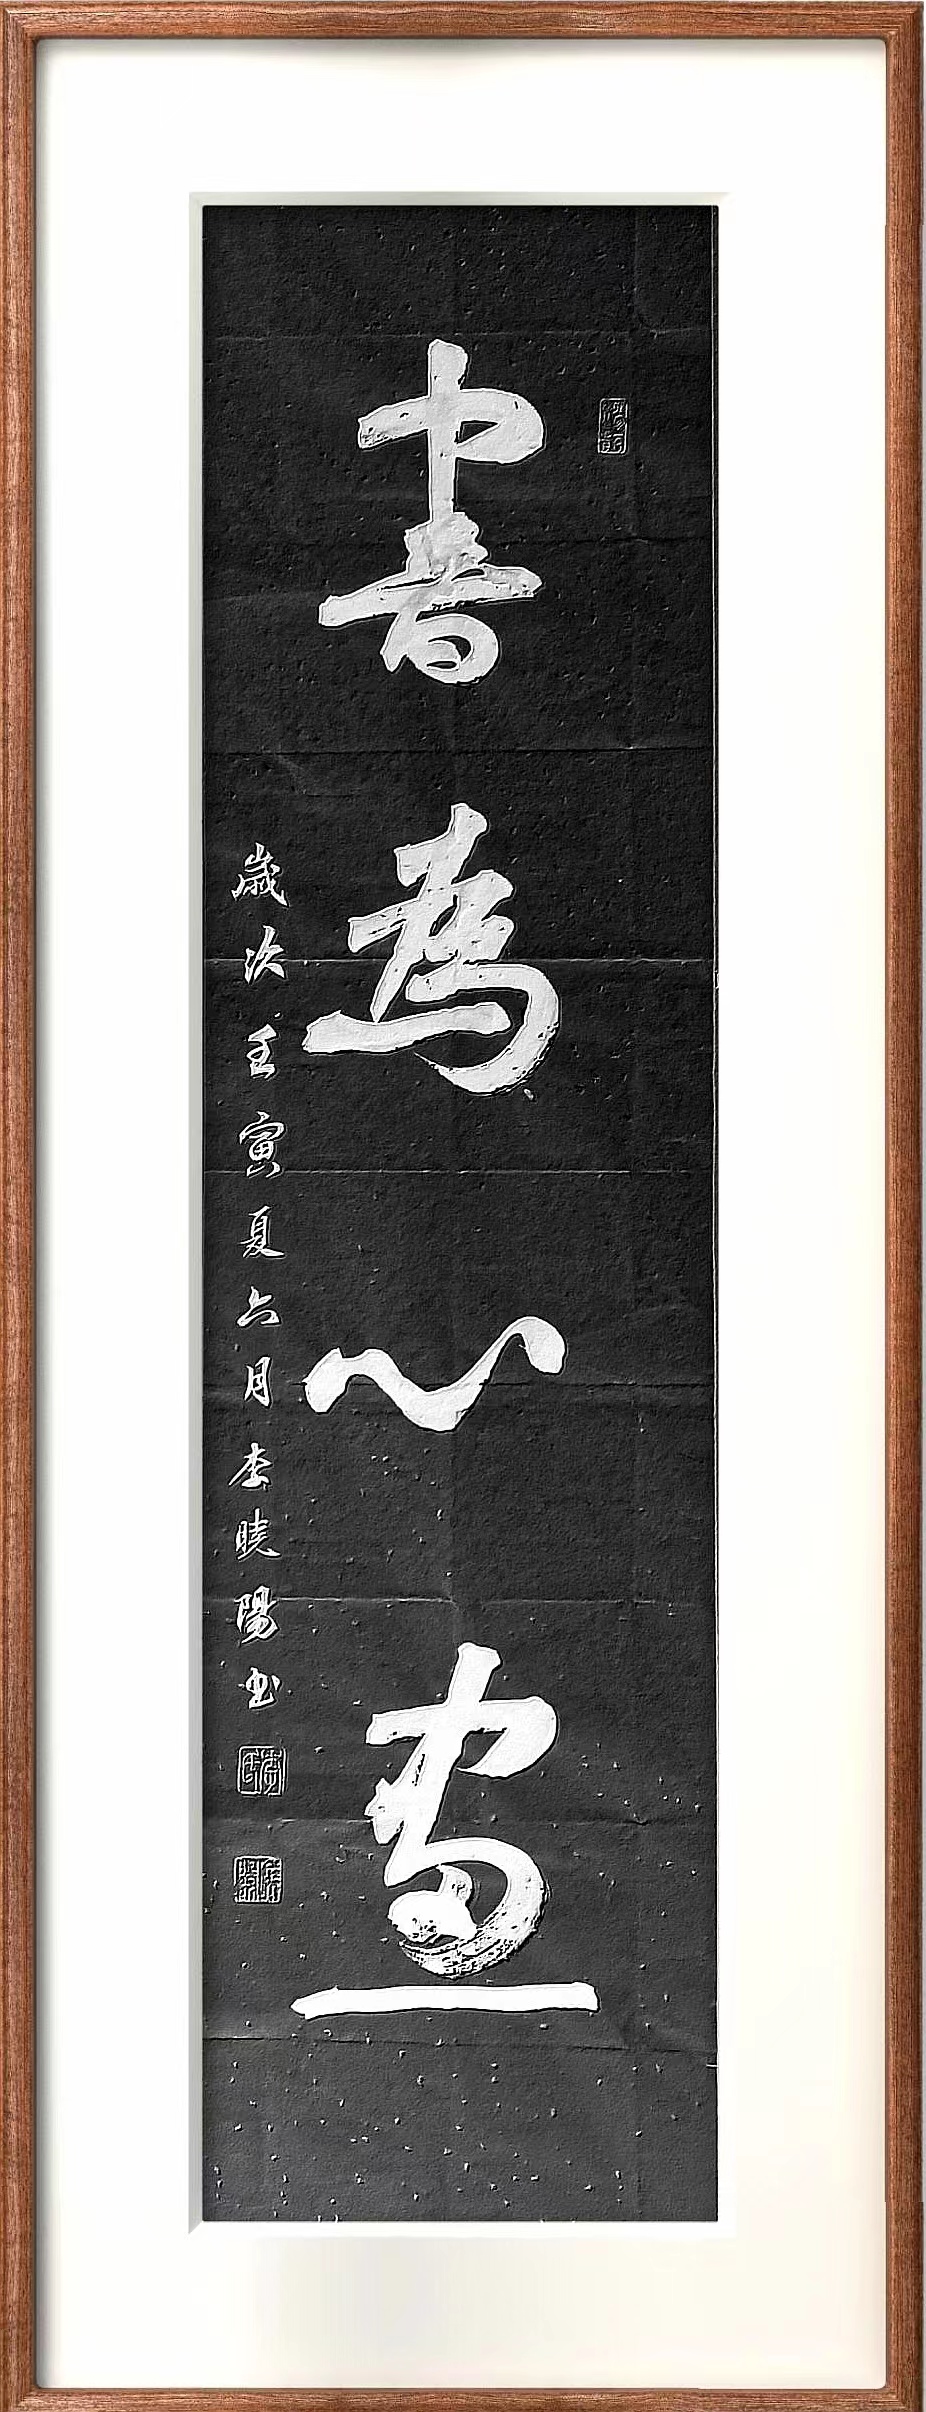 書為心画
歲次壬寅夏六月李曉陽书